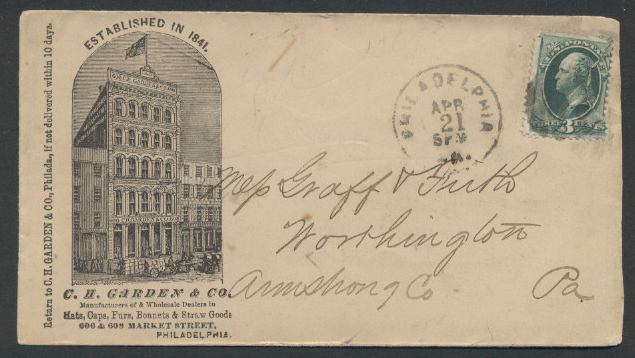 Return to C. H. GARDEN & CO., Philada., if not delivered within 10 days.
ESTABLISHED IN 1841.
C. H. GARDEN & CO.
Manufacturers of & Wholesale Dealers in
Hats, Caps, Furs, Bonnets & Straw Goods
606 & 608 MARKET STREET,
PHILADELPHIA.
PHILADELPHIA
APR
21
5 PM
PA.
U.S. POSTAGE
THREE CENTS
3
Mess Graff &
Worthington
Armstrong Co. Pa